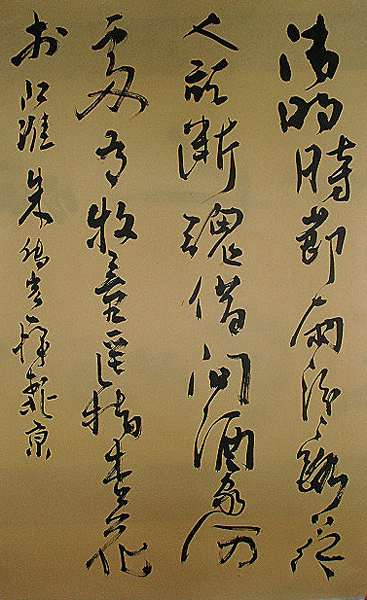 清明時節雨紛紛路上行
人欲斷魂借問酒家何
處有牧童遙指杏花
村 江 朱 京